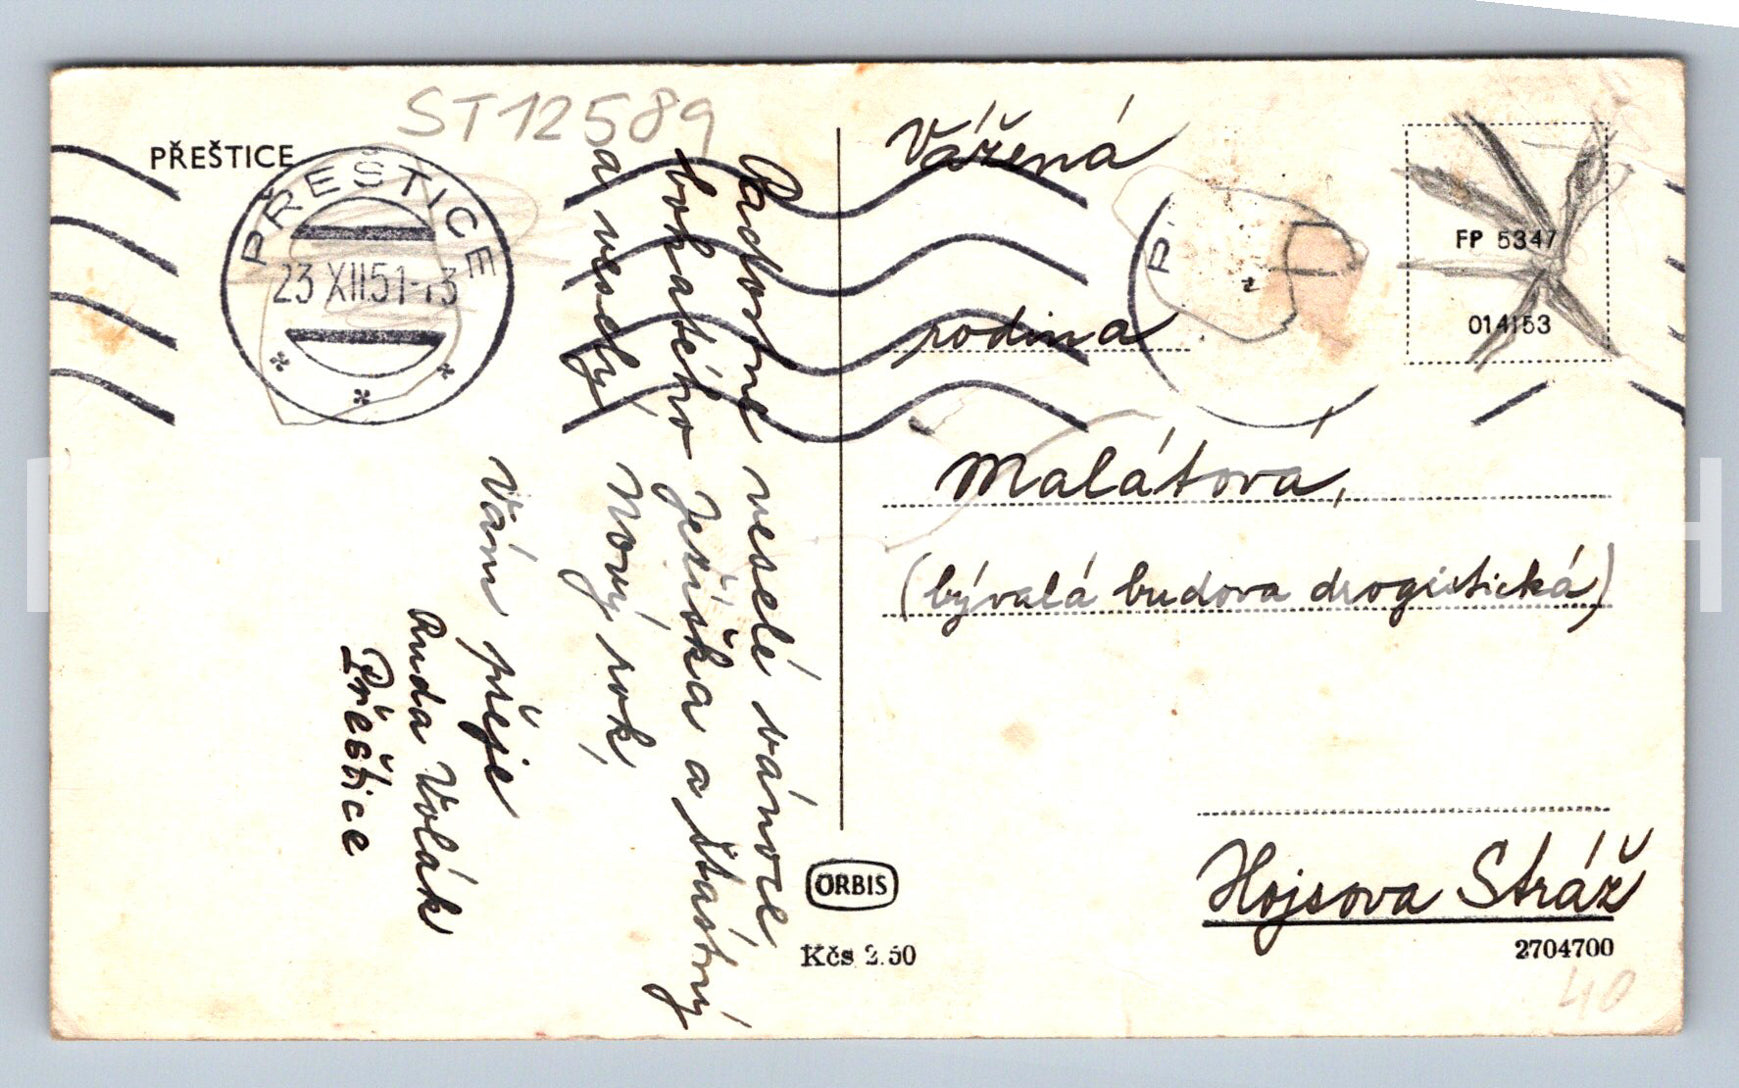 ST12589
PŘEŠTICE
PŘEŠTICE
23 XII 51-13
Radostné veselé vánoce,
bohatého Ježíška a šťastný
a veselý Nový rok,
Vám přeje
Ruda Volák
Přeštice
Vážená
rodina
Malátová,
(bývalá budova drogistická)
Hojsova Stráž
FP 5347
014153
P
ORBIS
Kčs 2.50
2704700
40